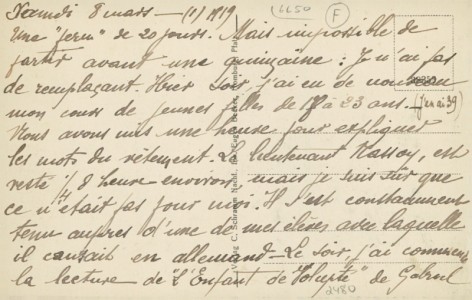 Samedi 8 mars — (1) 1919
Une "ferm" de 20 jours. Mais impossible de
partir avant une quinzaine : Je n'ai pas
de remplaçant. Hier soir, j'ai eu de nouveau
mon cours de jeunes filles de 17 à 23 ans. — (j'en ai 39)
Nous avons mis une heure pour expliquer
les mots du vêtement. Le lieutenant Massoy, est
resté 1/4 d heure environ, mais je suis sûr que
ce n'était pas pour moi. Il s'est constamment
tenu auprès d'une de mes élèves avec laquelle
il causait en allemand — Le soir, j'ai commencé
la lecture de "L'Enfant de Volupté" de Gabriel
6650
F
2480